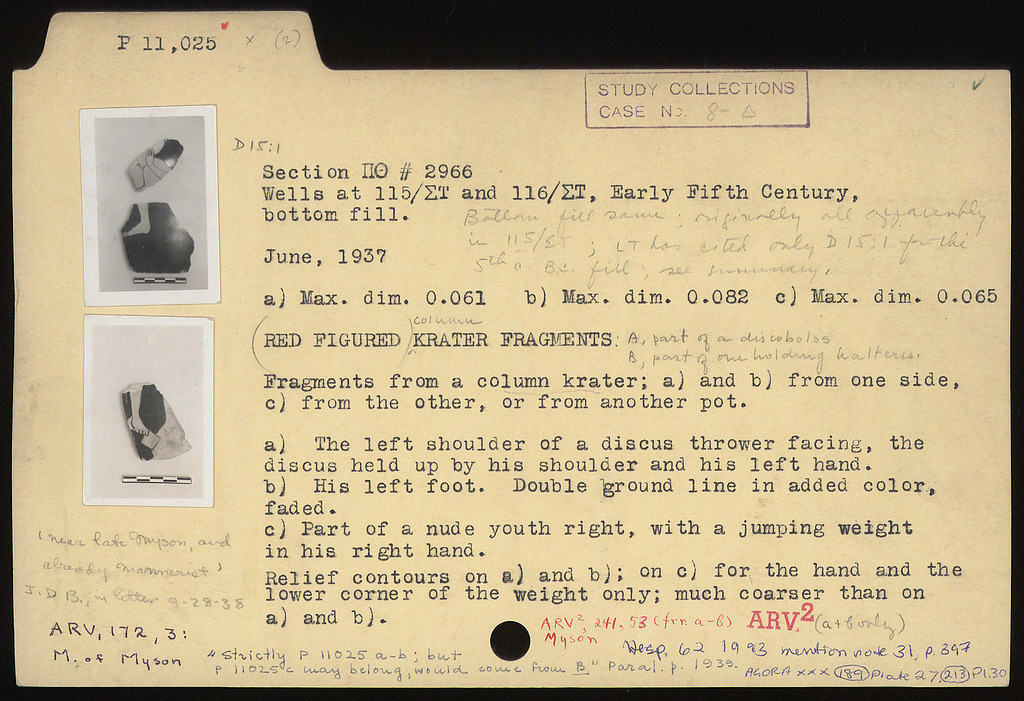 P 11,025 x (2)
STUDY COLLECTIONS
CASE NO. 8-Δ
D 15:1
Section ΠΘ # 2966
Wells at 115/ΣΤ and 116/ΣΤ, Early Fifth Century,
bottom fill.
Bottom fill same; originally all apparently
in 115/ΣΤ; LT has cited only D 15:1 for the
5th c. B.C. fill; see summary.
June, 1937
a) Max. dim. 0.061 b) Max. dim. 0.082 c) Max. dim. 0.065
column
(RED FIGURED) KRATER FRAGMENTS: A, part of a discobolos
B, part of one holding halteres.
Fragments from a column krater; a) and b) from one side,
c) from the other, or from another pot.
a) The left shoulder of a discus thrower facing, the
discus held up by his shoulder and his left hand.
b) His left foot. Double ground line in added color,
faded.
c) Part of a nude youth right, with a jumping weight
in his right hand.
Relief contours on a) and b); on c) for the hand and the
lower corner of the weight only; much coarser than on
a) and b).
'near late Myson, and
already mannerist'
J.D.B., in letter 9-28-38
ARV, 172, 3:
M. of Myson
ARV², 241, 53 (frr. a-b)
Myson
ARV² (a+b only)
Hesp. 62 1993 mention note 31, p. 397
"Strictly P 11025 a-b; but
P 11025 c may belong, would come from B" Paral. p. 1939.
AGORA XXX 189 Plate 27, 213 Pl. 30